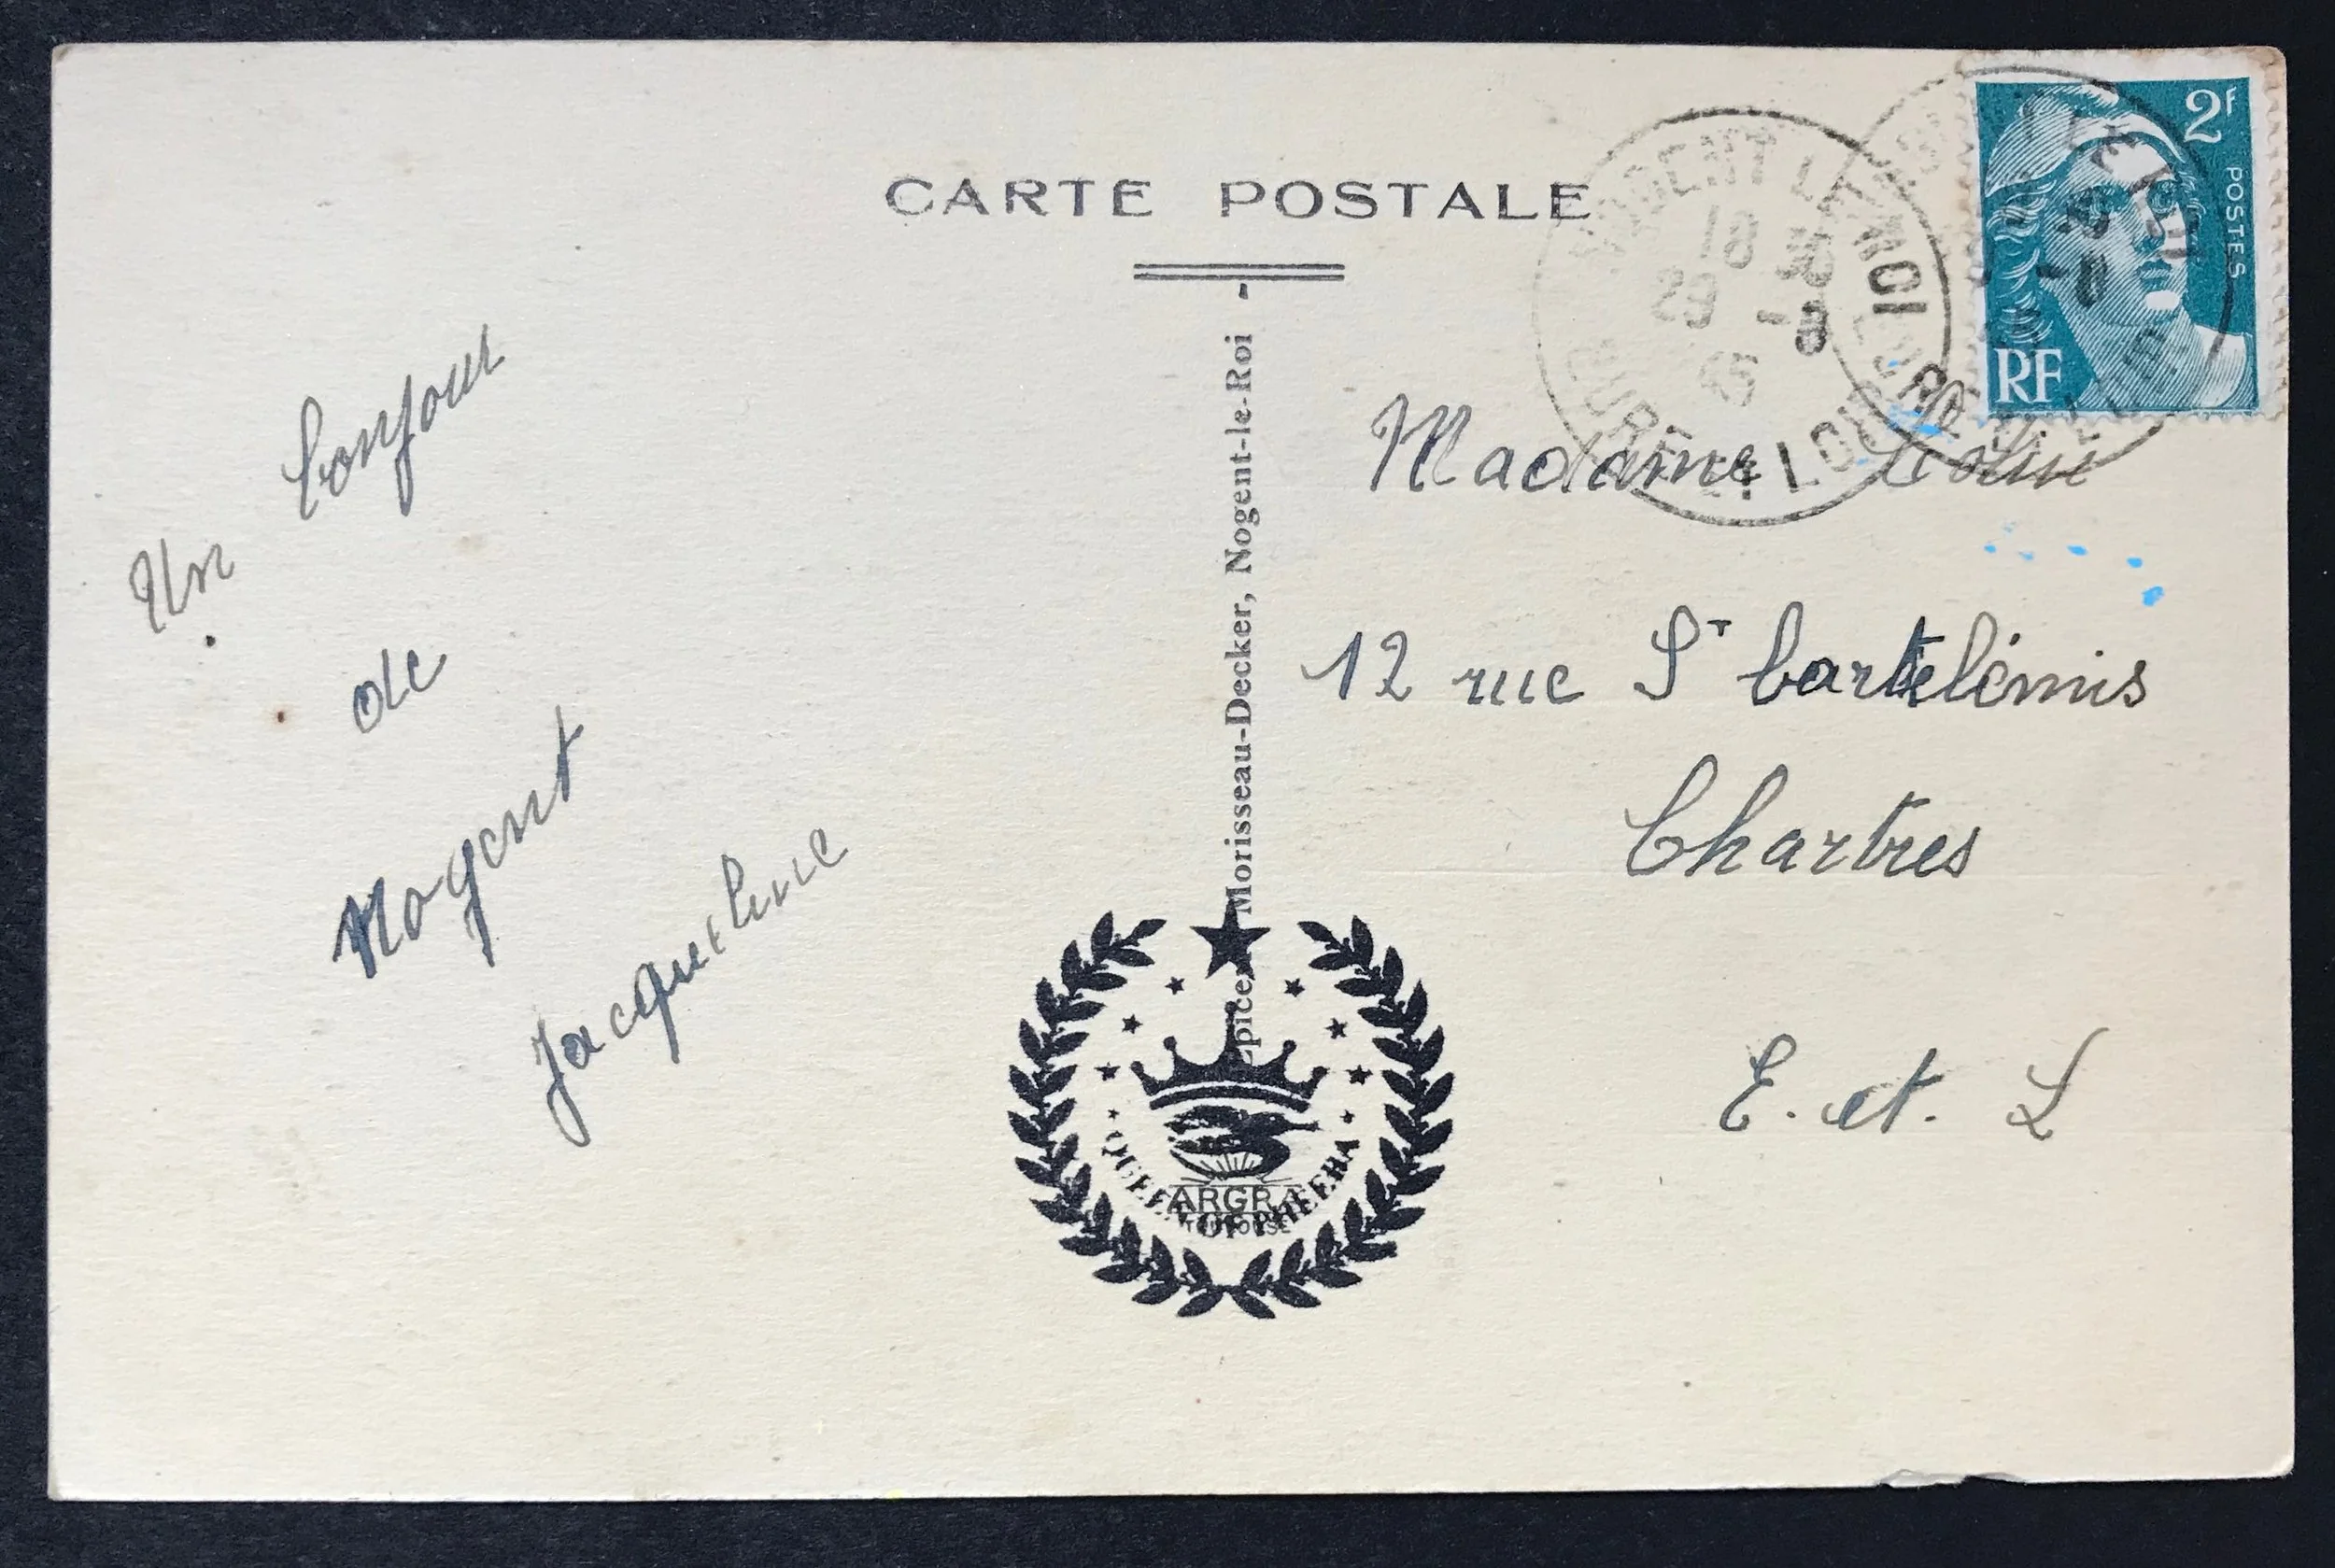 CARTE POSTALE
2F
POSTES
RF
NOGENT LE ROI
18 30
29 - 8
EURE ET LOIR
Un bonjour
de
Nogent
Jacqueline
Morisseau-Decker, Nogent-le-Roi -
Madame
12 rue St bartelémis
Chartres
E. et. L
QUEEN OF PHEEBA
ARGRA
TOULOUSE